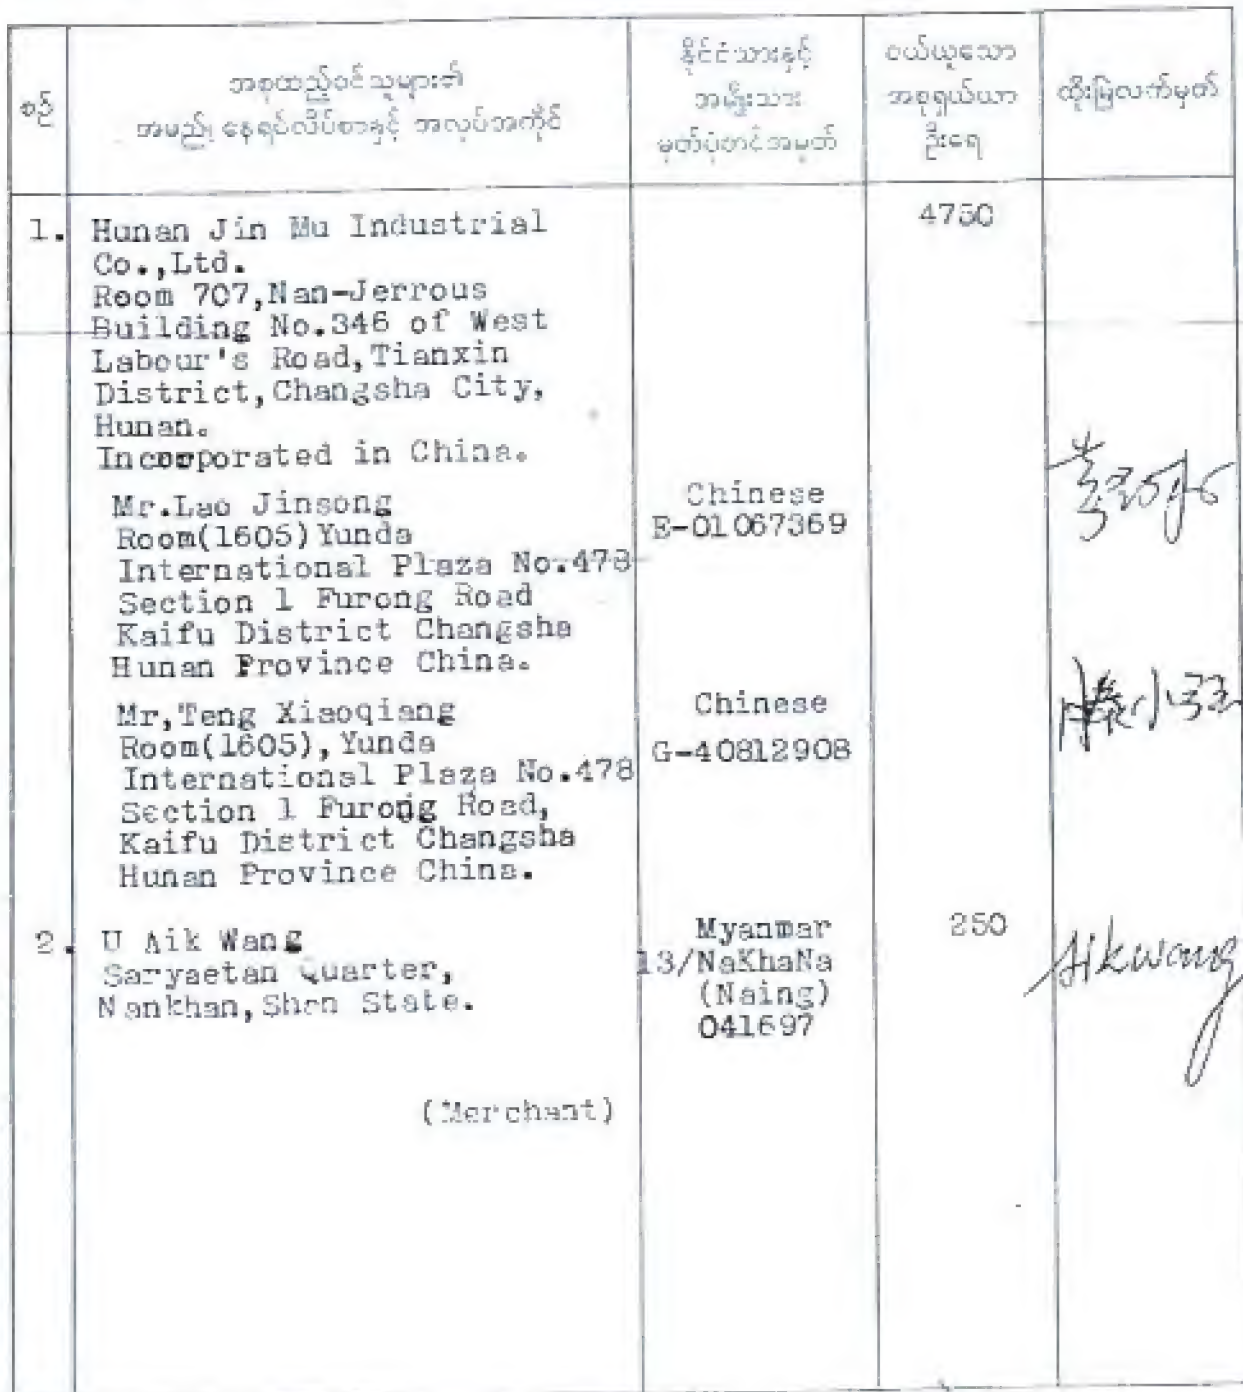 စဉ်
အစုထည့်ဝင်သူများ၏
အမည်၊ နေရပ်လိပ်စာနှင့် အလုပ်အကိုင်
နိုင်ငံသားနှင့်
အမျိုးသား
မှတ်ပုံတင်အမှတ်
ဝယ်ယူသော
အစုရှယ်ယာ
ဦးရေ
ထိုးမြဲလက်မှတ်
1. Hunan Jin Mu Industrial
Co.,Ltd.
Room 707,Nan-Jerrous
Building No.346 of West
Labour's Road,Tianxin
District,Changsha City,
Hunan.
Incorporated in China.
4750
Mr.Lao Jinsong
Room(1605) Yunda
International Plaza No.478
Section 1 Furong Road
Kaifu District Changsha
Hunan Province China.
Chinese
E-01067369
Mr,Teng Xiaoqiang
Room(1605), Yunda
International Plaza No.478
Section 1 Furong Road,
Kaifu District Changsha
Hunan Province China.
Chinese
G-40812908
滕小强
2. U Aik Wang
Saryaetan Quarter,
Nankhan,Shan State.
(Merchant)
Myanmar
13/NaKhaNa
(Naing)
041697
250
Aikwang